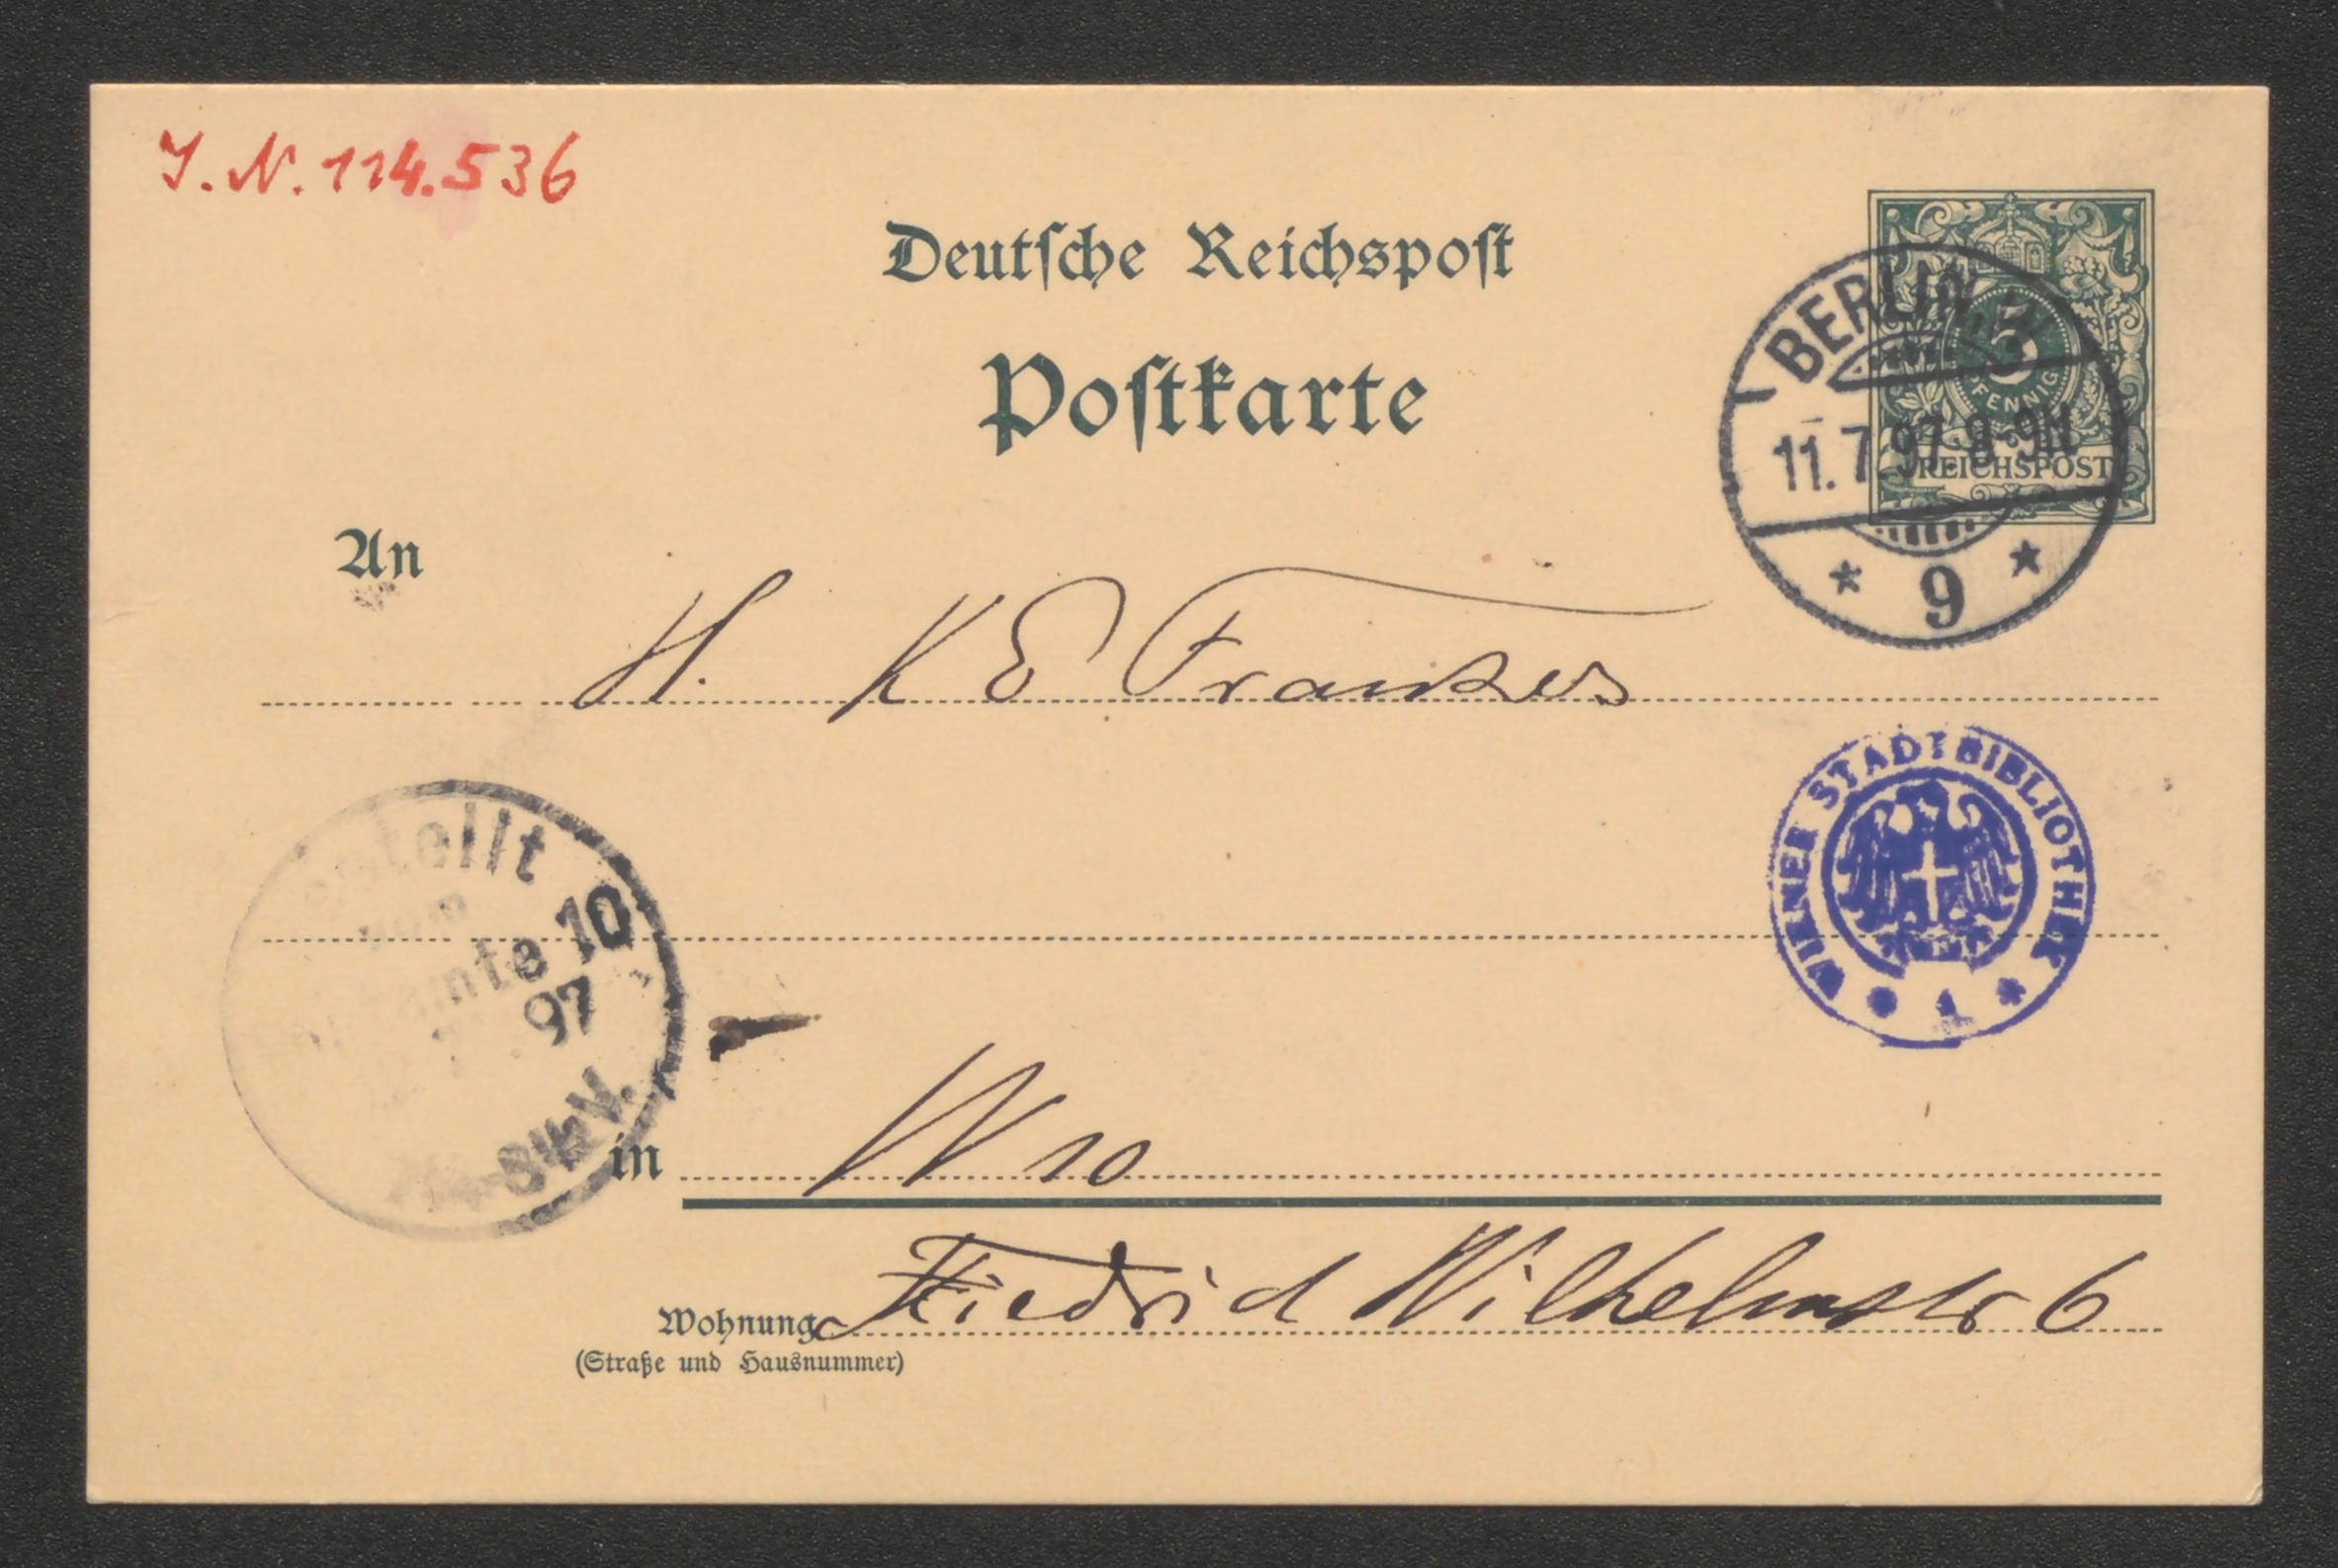 J. N. 114.536
Deutsche Reichspost
Postkarte
5
PFENNIG
REICHSPOST
BERLIN
11.7.97. 8-9N
* 9 *
An
H. K E Franzos
WIENER STADTBIBLIOTHEK
stellt
vom
amte 10
97
V.
in W 10
Wohnung Friedrich Wilhelmstr 6
(Straße und Hausnummer)